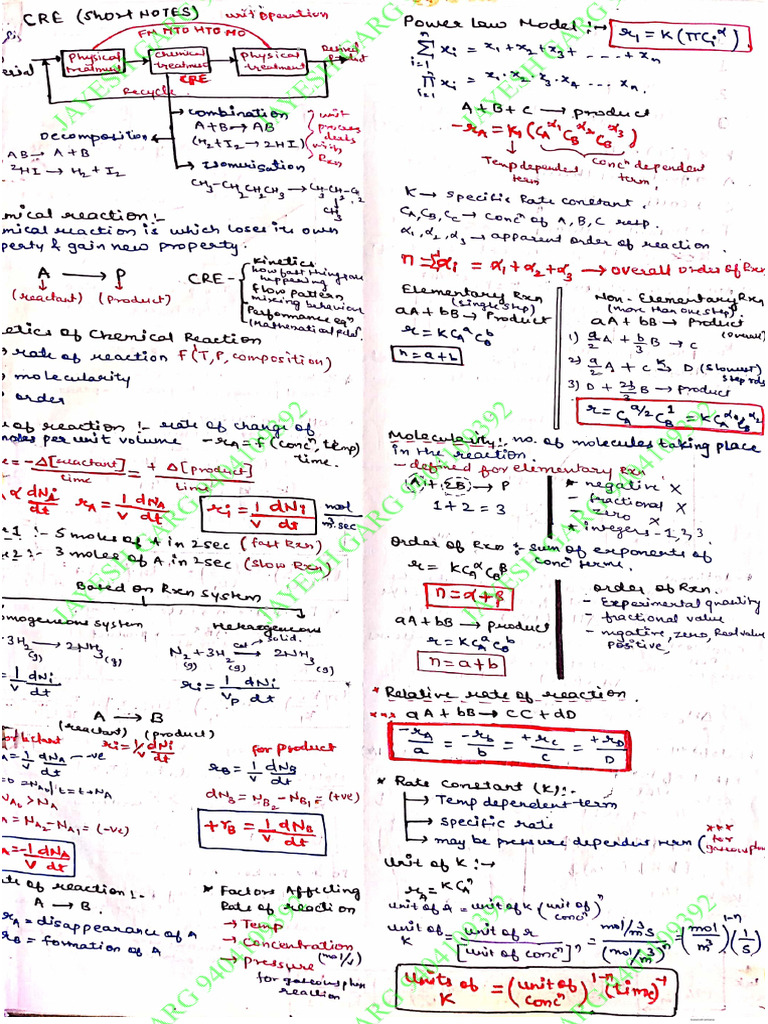 CRE (Short NOTES) unit operation
FM MTO HTO MO
Physical treatment
chemical treatment
Physical treatment
Desired
CRE
Recycle
combination
A+B → AB
(H2+I2 → 2HI)
unit process deals with Rxn
Decomposition
AB → A+B
2HI → H2+I2
Isomerisation
CH3-CH2CH2CH3 →
CH3
mical reaction :-
mical reaction is which loses its own
perty & gain new property.
A → P
(reactant) (product)
CRE -
Kinetics
how fast things are happening
Flow pattern
mixing behaviour
Performance eqn
(mathematical
etics of Chemical Reaction
rate of reaction f(T,P, composition)
molecularity
order
of reaction :- rate of change of
moles per unit volume -rA = f(concn, temp)
time.
= -Δ[reactant]/time = +Δ[product]/time
∝ dNi/dt rA = 1/V dNA/dt ri = 1/V dNi/dt mol/m3.sec
1 :- 5 moles of A in 2 sec (fast Rxn)
2 :- 3 moles of A in 2sec (slow Rxn)
Based on Rxn system
mogeneous system
3H2(g) → 2NH3(g)
= 1/V dNi/dt
Heterogeneous
cat solid.
N2(g)+3H2(g) → 2NH3(g)
ri = 1/Vp dNi/dt
A → B
(reactant) (product)
ri = 1/V dNi/dt
= 1/V dNA/dt -ve
> NA
= NA2 - NA1 = (-ve)
= -1/V dNA/dt
for product
rB = 1/V dNB/dt
dNB = NB2 - NB1 = (+ve)
+rB = 1/V dNB/dt
te of reaction :-
A → B.
rA = disappearance of A
rB = formation of A
* Factors Affecting
Rate of reaction
→ Temp
→ Concentration
(mol/s)
→ Pressure
for gaseous phase
reaction
Power law Model :- ri = K(πCi^α)
Σ xi = x1+x2+x3+ ..... + xn
i=1
n
π xi = x1.x2.x3.x4 ... xn.
i=1
A+B+C → product
-rA = K1(CA^α1 CB^α2 CB^α3)
Temp dependent term
concn dependent term.
K → specific Rate constant.
CA, CB, CC → concn of A, B, C resp.
α1, α2, α3 → apparent order of reaction.
n = Σαi = α1+α2+α3 → overall order of Rxn
Elementary Rxn
(single step)
aA+bB → Product
r = KCA^a CB^b
n=a+b
Non-Elementary Rxn
(more than one step)
aA+bB → Product
(overall)
1) a/2 A + b/3 B → C
2) a/2 A + C → D (slowest)
3) D + 2b/3 B → product
r = CA^a/2 CB^1 = KCA^α1 CB^α2
Molecularity :- no. of molecules taking place
in the reaction.
- defined for elementary Rxn
(A)+(2B) → P
1+2=3
* negative X
- fractional X
- zero X
* integers - 1,2,3.
order of Rxn :- sum of exponents of
concn terms.
r = KCA^α CB^β
n=α+β
aA+bB → product
r = KCA^a CB^b
n=a+b
order of Rxn.
- Experimental quantity
- fractional value
- negative, zero, Real value
positive,
* Relative rate of reaction.
aA+bB → CC+dD
-rA/a = -rb/b = +rc/C = +rD/D
* Rate constant (K) :-
→ Temp dependent-term
→ specific rate
→ may be pressure dependent term (for gaseous ph
Unit of K :-
rA = KCA^n
unit of r = unit of K (unit of concn)^n
unit of K = unit of r/[unit of concn]^n = mol/m3s/(mol/m3)^n = (mol/m3)^1-n (1/s)
units of K = (unit of concn)^1-n (time)^-1
JAYESH GARG 9404109392